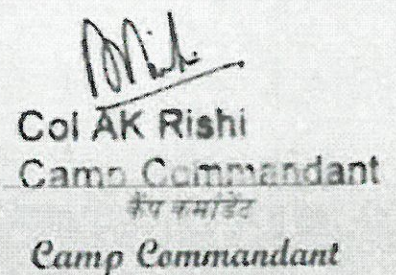 Col AK Rishi
Camp Commandant
कैंप कमांडेंट
Camp Commandant